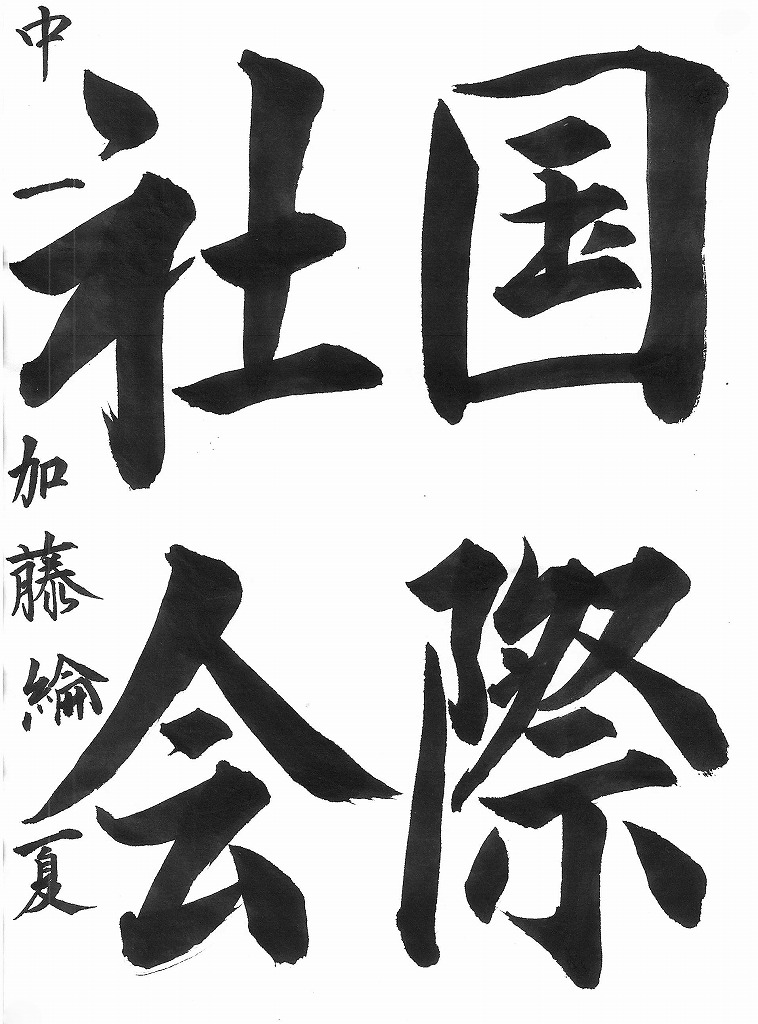 国際
社会
中一 加藤綸夏